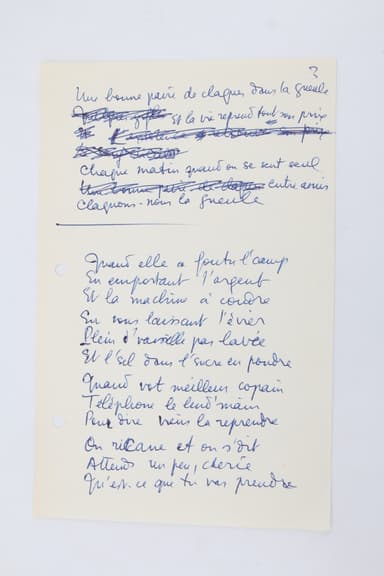 3
Une bonne paire de claques dans la gueule
Et la vie reprend tout son prix
Chaque matin quand on se sent seul
Une bonne paire de claques entre amis
Claquons-nous la gueule
Quand elle a foutu l'camp
En emportant l'argent
Et la machine à coudre
En vous laissant l'évier
Plein d'vaisselle pas lavée
Et l'sel dans l'sucre en poudre
Quand vot meilleur copain
Téléphone le lend'main
Pour dire viens la reprendre
On ricane et on s'dit
Attends un peu, chérie
Qu'est-ce que tu vas prendre